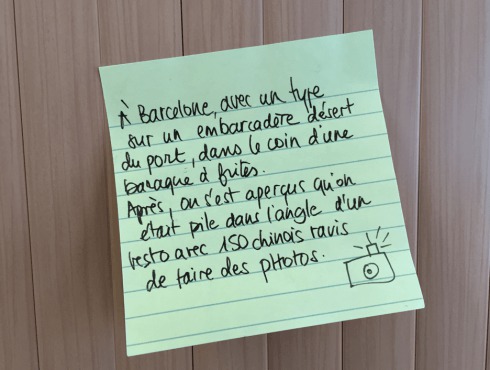 À Barcelone, avec un type
sur un embarcadère désert
du port, dans le coin d'une
baraque à frites.
Après, on s'est aperçus qu'on
était pile dans l'angle d'un
resto avec 150 chinois ravis
de faire des photos.